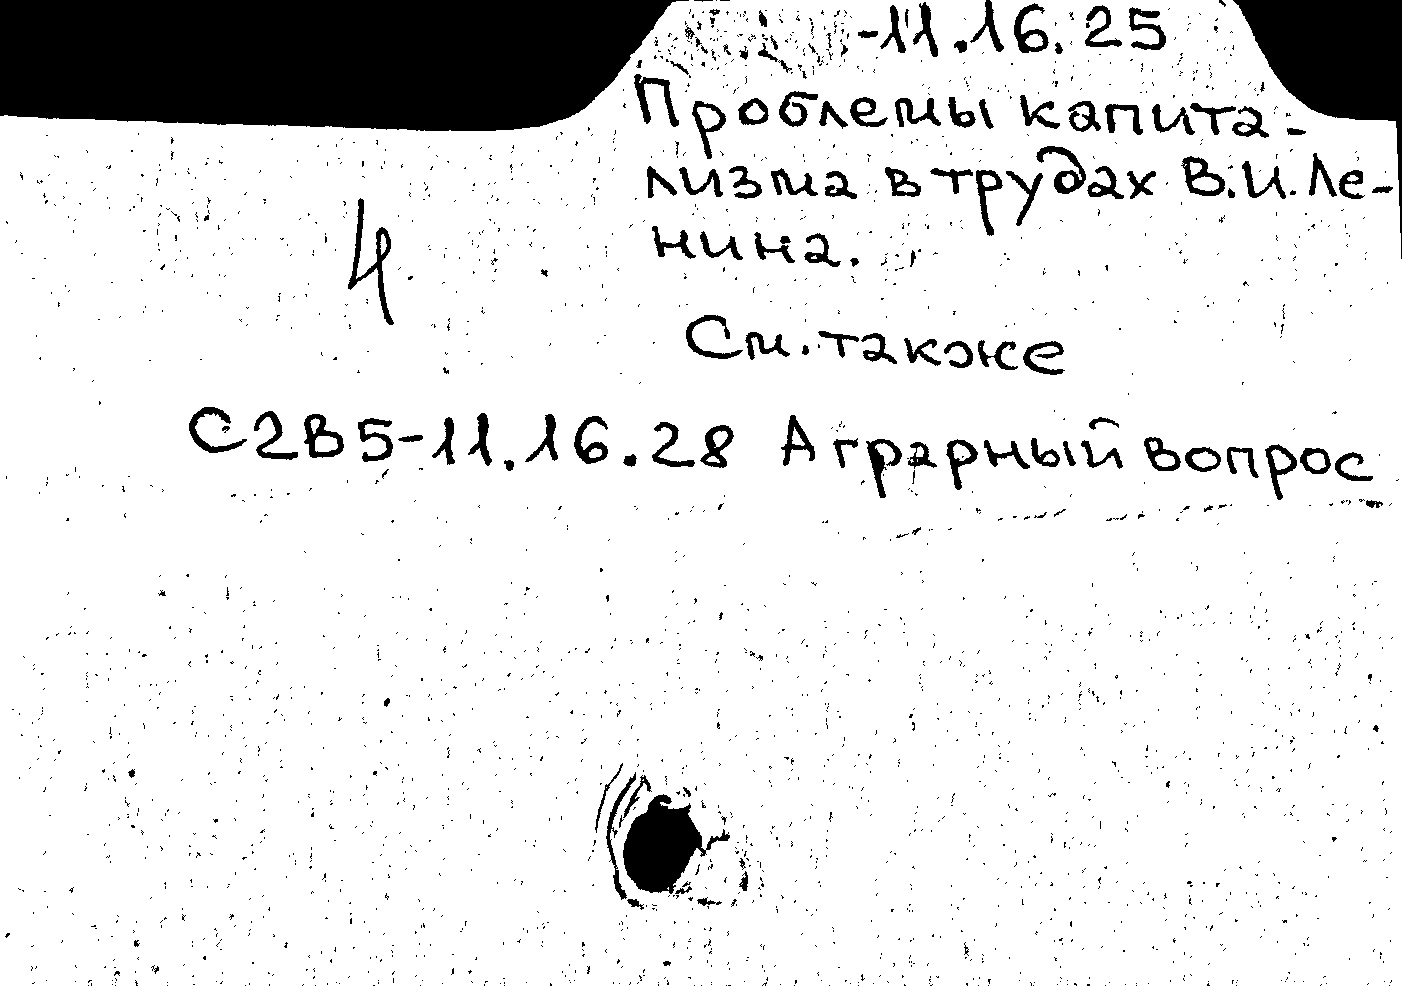 -11.16.25
Проблемы капита-
лизма в трудах В.И. Ле-
нина.
4
См. также
С2В5-11.16.28 Аграрный вопрос